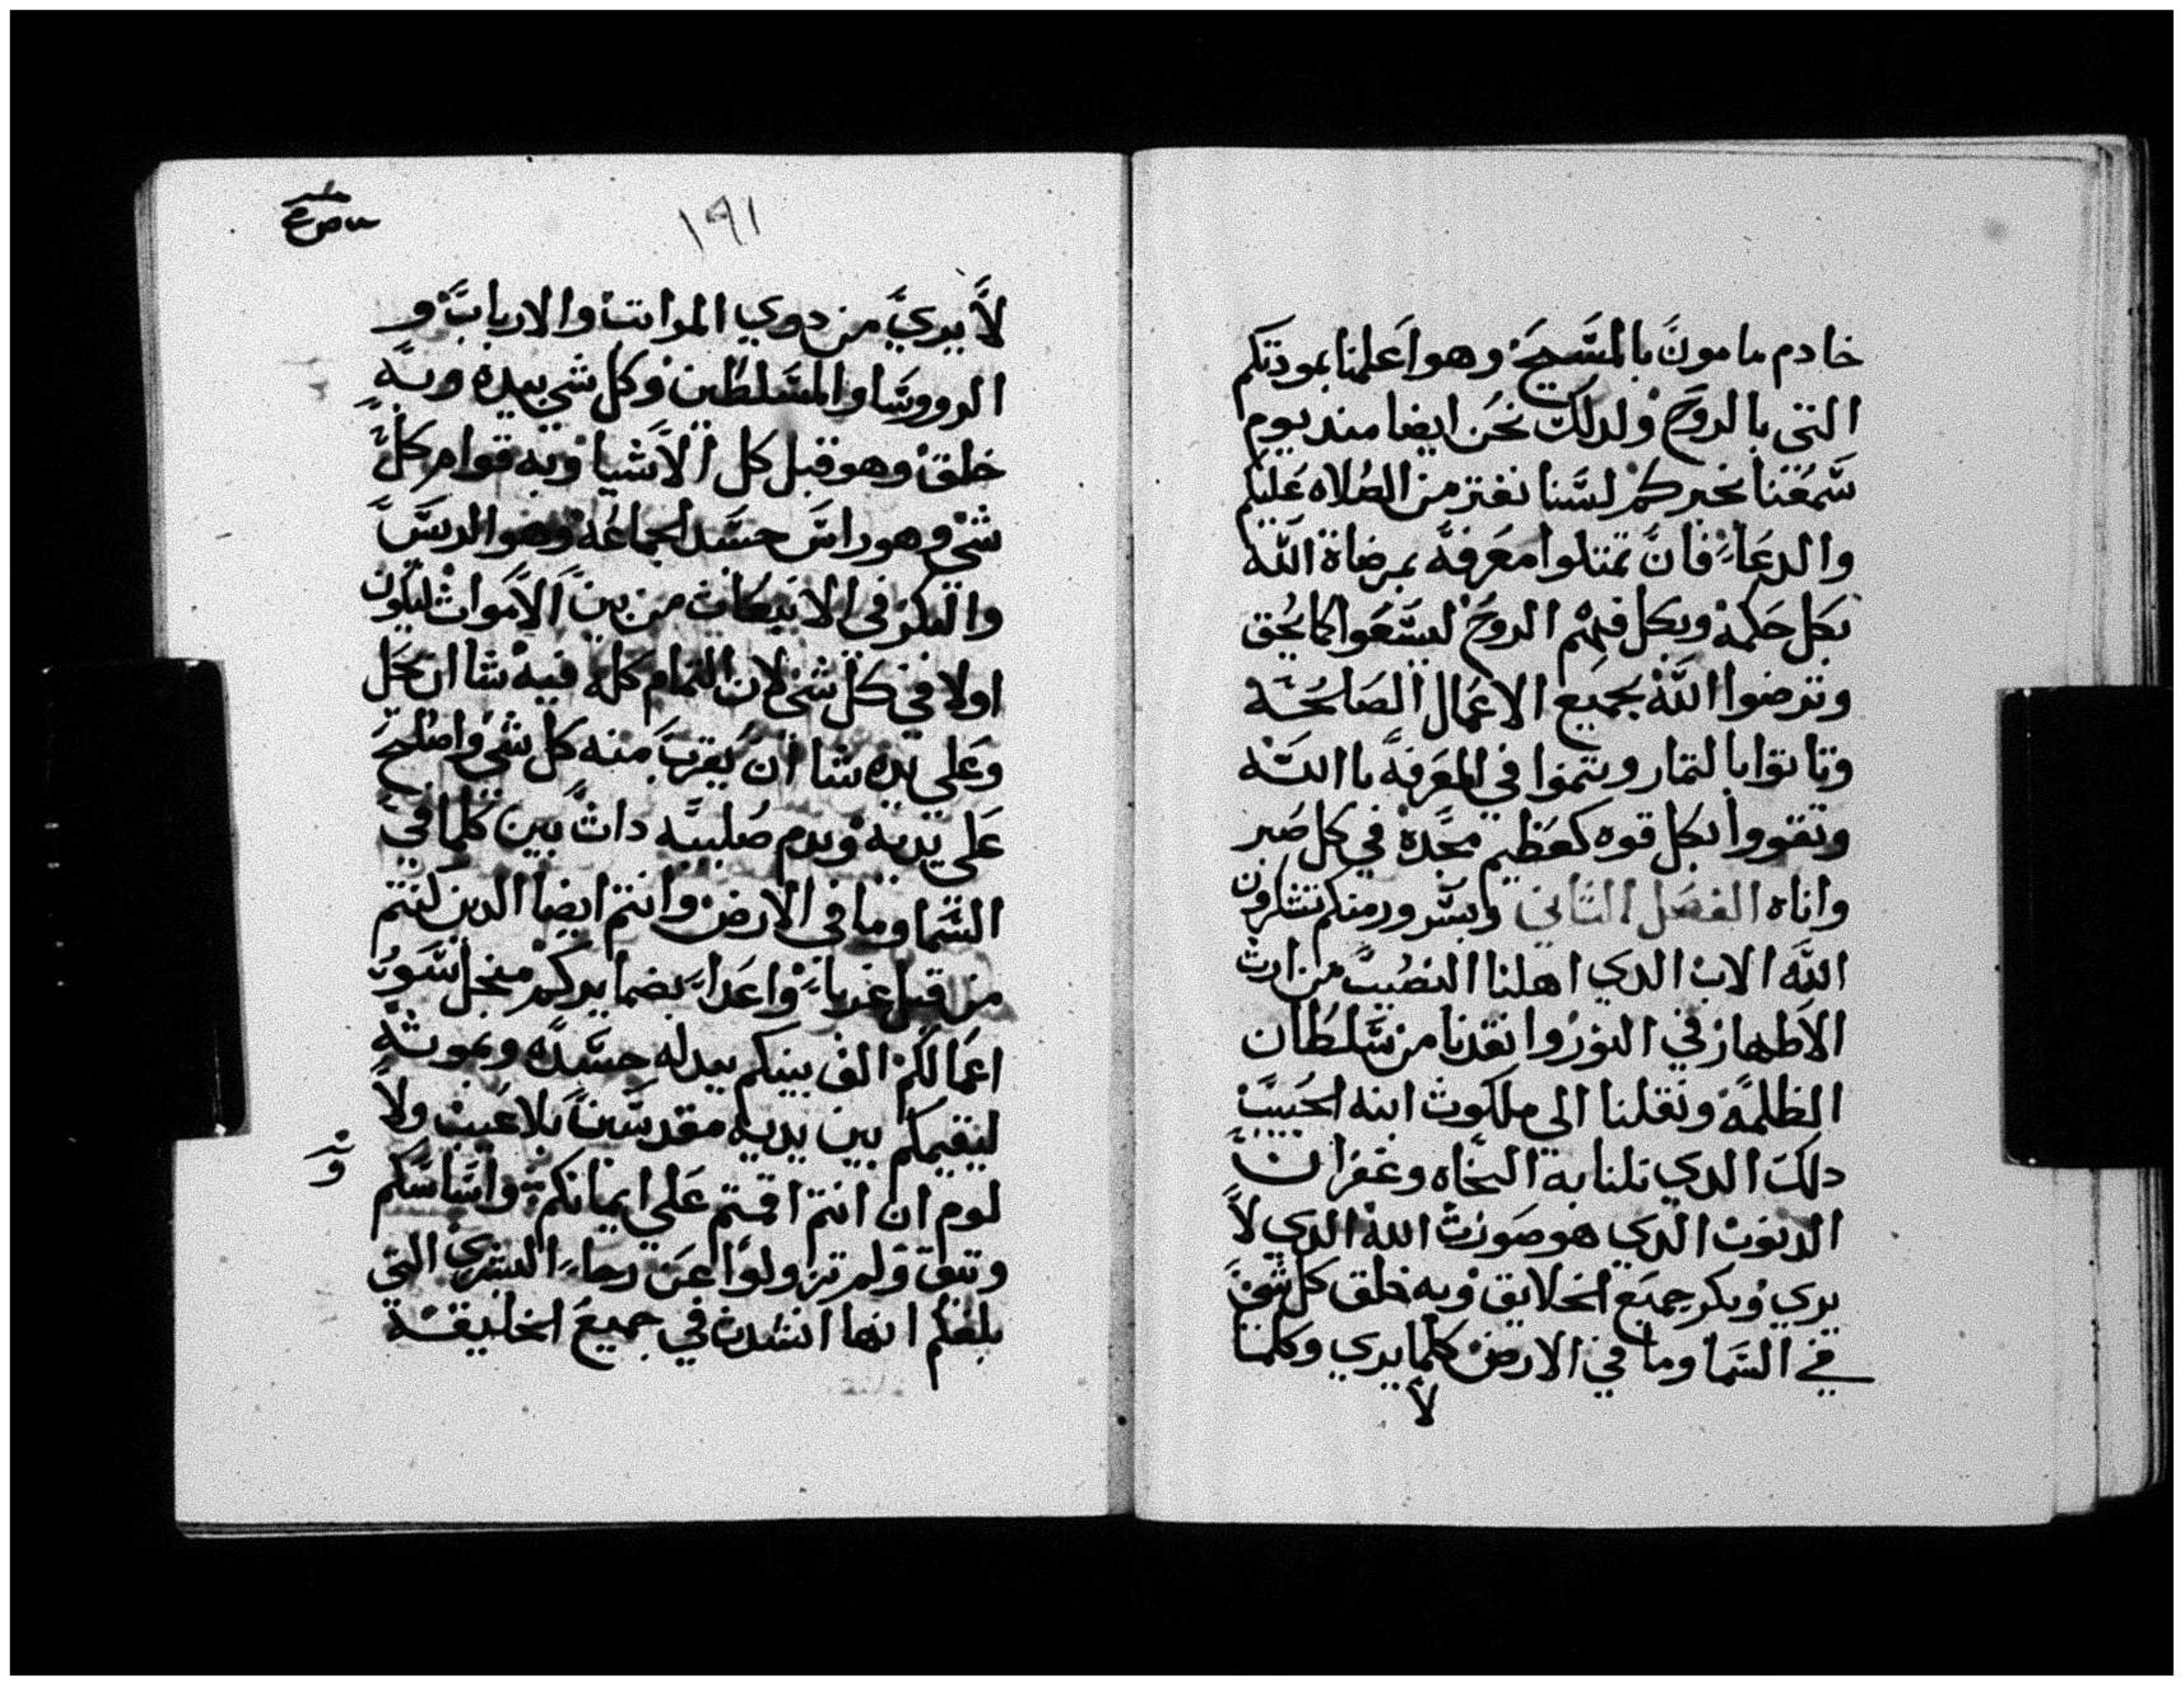 خادم مامون بالمسيح وهو اعلمنا بمودتكم
التي بالروح ولدلك نحن ايضا مند يوم
سمعنا بخبركم لسنا نفتر من الصلاه عليكم
والدعاء فان تمتلوا معرفه بمرضاة الله
بكل حكمه وبكل فهم الروح لتسعوا كما يحق
وترضوا الله بجميع الاعمال الصالحه
وتاتوا بالتمار وتنموا في المعرفه باالله
وتقووا بكل قوه كعظيم مجده في كل صبر
واناه الفصل التاني وبسرور منكم تشكرون
الله الاب الدي اهلنا النصيب من ارت
الاطهار في النور وانقدنا من سلطان
الظلمة ونقلنا الي ملكوت ابنه الحبيب
دلك الدي نلنا به النجاه وغفران
الدنوب الدي هو صورت الله الدي لا
يري وبكر جميع الخلايق وبه خلق كل شي
في السما وما في الارض كلما يري وكلما
لا
١٩١
لا يري من دوي المراتب والارباب و
الرووسا والمسلطين وكل شي بيده وبه
خلق وهو قبل كل الاشيا وبه قوام كل
شي وهو راس جسد الجماعه وهو الريس
والبكر في الانبعاث من بين الاموات ليكون
اولا في كل شي لان التمام كله فيه شا ان يحل
وعلي يده شا ان يقرب منه كل شي واصلح
علي يديه وبدم صليبه دات بين كلما في
السما وما في الارض وانتم ايضا الدين كنتم
من قبل غرباء واعداء بضمايركم من اجل سو
اعمالكم الف بينكم ببدله جسده وبموته
ليقيمكم بين يديه مقدسين بلا عيب ولا
لوم ان انتم اقمتم علي ايمانكم واساسكم
وتيق ولم تزولوا عن رجاء البشري التي
بلغكم انها انشدت في جميع الخليقة